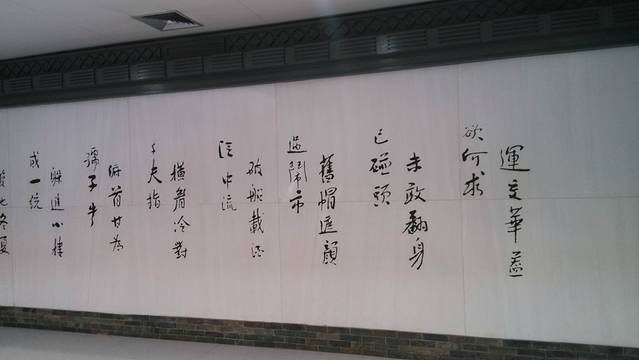 運交華蓋
欲何求
未敢翻身
已碰頭
舊帽遮顏
過鬧市
破船載酒
泛中流
橫眉冷對
千夫指
俯首甘為
孺子牛
躲進小樓
成一統
冬夏